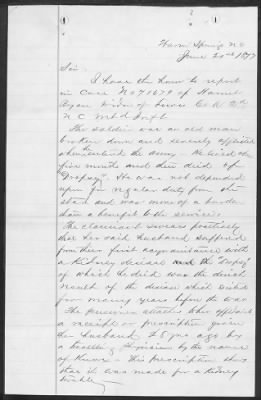 Warm Springs N.C.
June 20th 1897
Sir.
I have the honor to report
in Case No 71679 of Harriet
Ryan Widow of Lewis Co. A 2nd
N C Mtd Inft.
The soldier was an old man
broken down and severely afflicted
when he entered the Army. He lived
five months and then died of
"Dropsy". He was not depended
upon for regular duty from the
start and was more of a burden
than a benefit to the service.
The claimant swears positively
that her said Husband suffered
from their first acquaintance with
a Kidney disease and the Dropsy
of which he died was the direct
result of the disease which existed
for many years before the war
The prisoner attaches to her affidavit
a receipt or prescription given
her husband 25 yrs ago by
a travelling Physician by the name
of The prescription shows
that it was made for a Kidney
trouble